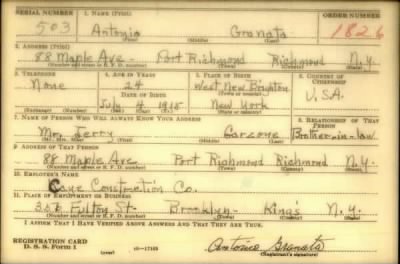 SERIAL NUMBER 1. NAME (Print) ORDER NUMBER
503 Antonio Granata 1826
(First) (Middle) (Last)
2. ADDRESS (Print)
88 Maple Ave - Port Richmond Richmond N.Y.
(Number and street or R. F. D. number) (Town) (County) (State)
3. TELEPHONE 4. AGE IN YEARS 5. PLACE OF BIRTH 6. COUNTRY OF CITIZENSHIP
None West New Brighton
DATE OF BIRTH (Town or county) U.S.A.
July 4 New York
(Exchange) (Number) (Mo.) (Day) (Yr.) (State or country)
7. NAME OF PERSON WHO WILL ALWAYS KNOW YOUR ADDRESS 8. RELATIONSHIP OF THAT PERSON
Mr. Jerry Brother-in-law
(Mr., Mrs., Miss) (First) (Middle) (Last)
9. ADDRESS OF THAT PERSON
88 Maple Ave Port Richmond Richmond N.Y.
(Number and street or R. F. D. number) (Town) (County) (State)
10. EMPLOYER'S NAME
Construction Co.
11. PLACE OF EMPLOYMENT OR BUSINESS
Fulton St- Brooklyn- King's N.Y.
(Number and street or R. F. D. number) (Town) (County) (State)
I AFFIRM THAT I HAVE VERIFIED ABOVE ANSWERS AND THAT THEY ARE TRUE.
REGISTRATION CARD
D. S. S. Form 1 16-17105 Antonio Granata
(Registrant's signature)